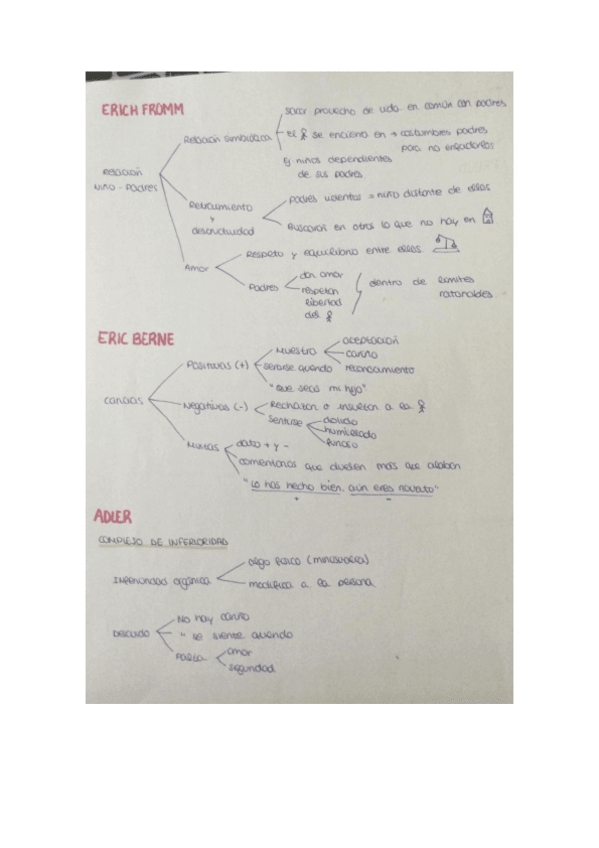 ERICH FROMM
sacar provecho de vida en común con padres
Relación simbiótica
el se encierra en → costumbres padres
para no enfadarlos
Ej. niños dependientes
de sus padres
Relación
niño - padres
padres violentos = niño distante de ellos
Retraimiento
y
destructividad
Buscarás en otros lo que no hay en
Respeto y equilibrio entre ellos.
Amor
Padres
dan amor
respetan
libertad
del
dentro de límites
razonables.
ERIC BERNE
caricias
Positivas (+)
Muestro
aceptación
cariño
reconocimiento
sentirse querido
"que seas mi hijo"
Negativas (-)
Rechazan o insultan a la
Sentirse
dolido
humillado
furioso
Mixtas
dato + y -
comentarios que duelen más que alaban
"Lo has hecho bien, aún eres novato"
+ -
ADLER
COMPLEJO DE INFERIORIDAD
Inferioridad orgánica
algo físico (minusvalía)
modifica a la persona
Descuido
No hay cariño
" se siente querido
Falta
amor
seguridad